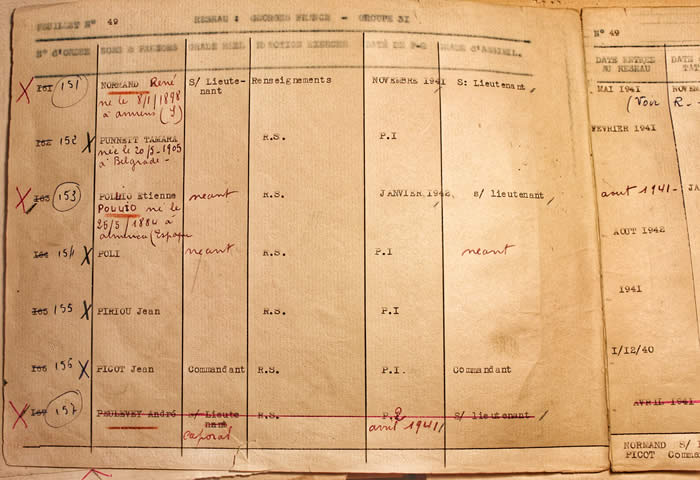 FEUILLET N° 49 RESEAU : GEORGES FRANCE - GROUPE 31
N° D'ORDRE NOMS & PRENOMS GRADE REEL FONCTION EXERCEE DATE DE P-2 GRADE D'ASSIMIL.
X 151 NORMAND René S/ Lieute- Renseignements NOVEMBRE 1941 S: Lieutenant
nant
né le 8/1/1898
à amiens (S)
152 X PUNNETT TAMARA R.S. P.I
née le 20/5-1905
à Belgrade-
X 153 Etienne neant R.S. JANVIER 1942 s/ lieutenant
POLLIO né le
25/5/1884 à
(Espagn
154 X POLI neant R.S. P.I neant
155 X PIRIOU Jean R.S. P.I
156 X PICOT Jean Commandant R.S. P.I. Commandant
X 157 PEULEVEY André S/ Lieute R.S. P.2 S/ lieutenant
nant
caporal avril 1941
N° 49
DATE ENTREE DATE
AU RESEAU
MAI 1941 NOVEM
(Voir R-
FEVRIER 1941
aout 1941- JA
AOUT 1942
1941
1/12/40
AVRIL 1941
NORMAND S/
PICOT Comma